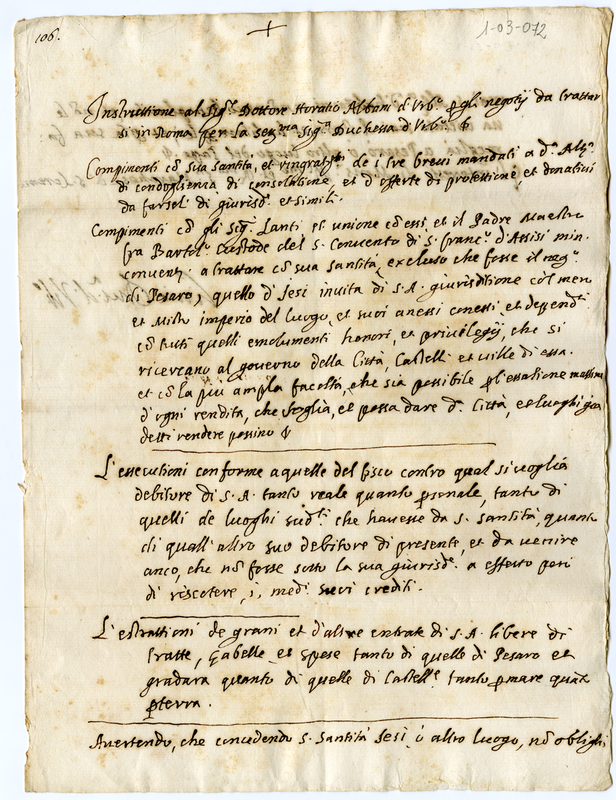 106.
1-03-072
Instruttione al Sig.r Dottore Horatio Albani d'Urb.o p gli negotij da trattar
si in Roma per la ser.ma Sig.ra Duchessa d'Urb.o
Compimenti cō sua santità, et ringratiam.ti de i tre brevi mandati a d.a Alt.a
di condoglienza, di consolatione, et d'offerte di protettione, et donativi
da farseli di giurisd.e et simili.
Compimenti cō gli Sig.ri Lanti et unione cō essi, et il Padre Maestro
fra Bartol.o Custode del S. Convento di S. Franc.o d'Assisi min.
Convent. a trattare cō sua santità, excluso che fosse il neg.o
di Pesaro, quello d'Jesi in vita di S.A. giurisditione cō'l mero
et Misto imperio del luogo, et suoi anessi conessi et depend.ti
cō tutti quelli emolumenti honori, et privilegij, che si
ricercano al governo della Città, Castelli et ville di essa.
et cō la più ampla facoltà, che sia possibile p l'essatione massime
d'ogni rendita, che soglia, et possa dare d.a Città, et luoghi
detti rendere possino
L'essecutioni conforme a quelle del fisco contro qual si voglia
debitore di S.A. tanto reale quanto psonale, tanto di
quelli de luoghi sud.ti che havesse da S. santità, quanto
di quall'altro suo debitore di presente, et da venire
anco, che nō fosse sotto la sua giurisd.e a effetto però
di riscotere, i, med.i suoi crediti.
L'estrattioni de grani et d'altre entrate di S.A. libere di
tratte, Gabelle, et spese tanto di quelle di Pesaro et
gradara quanto di quelle di Castell.e tanto p mare quāto
p terra.
Avertendo, che concedendo S. Santità Jesi, ò altro luogo, nō oblighi